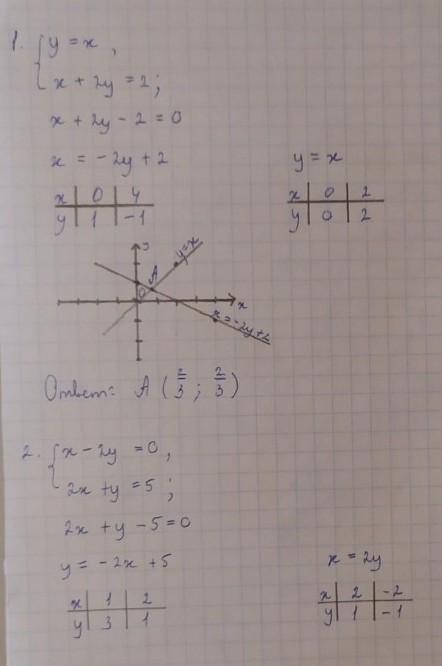 1. { y = x,
x + 2y = 2;
x + 2y - 2 = 0
x = -2y + 2
y = x
x | 0 | 4
y | 1 | -1
x | 0 | 2
y | 0 | 2
y
y=x
A
0
x
x=-2y+2
Ответ: A (2/3; 2/3)
2. { x - 2y = 0,
2x + y = 5;
2x + y - 5 = 0
y = -2x + 5
x = 2y
x | 1 | 2
y | 3 | 1
x | 2 | -2
y | 1 | -1